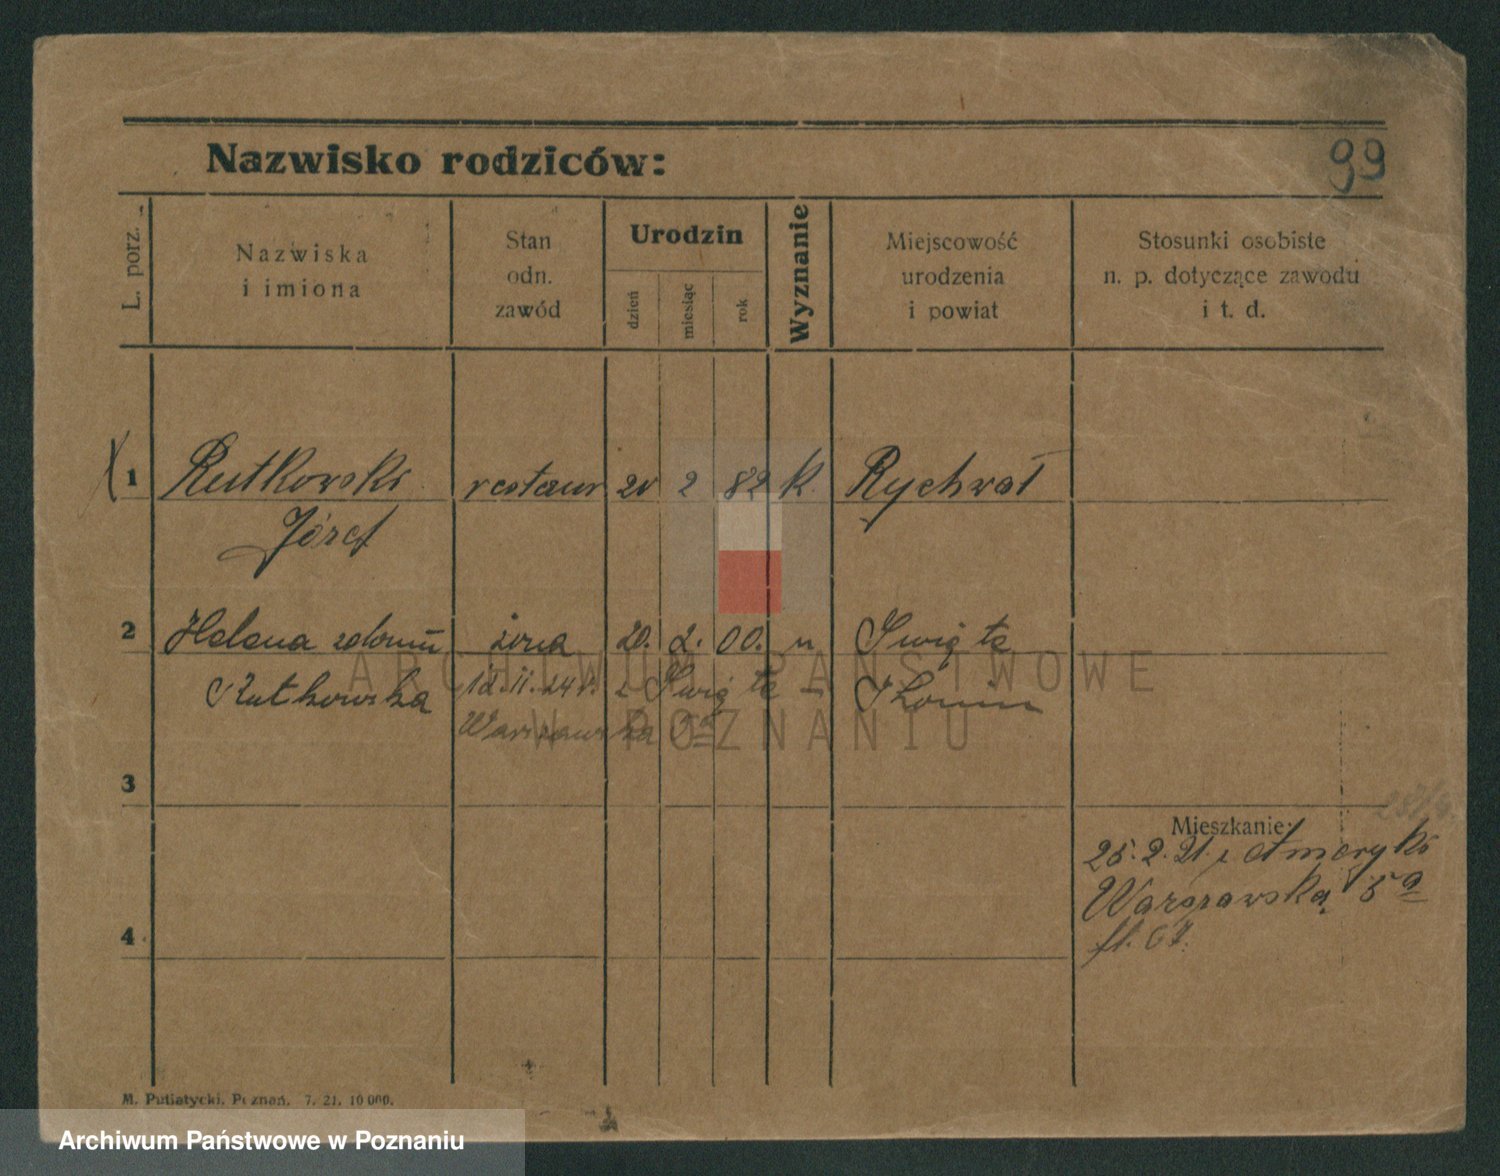 99
Nazwisko rodziców:
L. porz.
Nazwiska
i imiona
Stan
odn.
zawód
Urodzin
dzień
miesiąc
rok
Wyznanie
Miejscowość
urodzenia
i powiat
Stosunki osobiste
n. p. dotyczące zawodu
i t. d.
1 Rutkowski restaur 20 2 82 K. Rychwał
Józef
2 Helena żona 20. 2. 00. Święte
Rutkowska 12.11.24 r. z Święte - Konin
Warszawska 5a
3
Mieszkanie:
25.2.21. z Ameryki
Warszawska 5a
4
M. Putiatycki, Poznań. 7. 21. 10 000.
ARCHIWUM PAŃSTWOWE
W POZNANIU
Archiwum Państwowe w Poznaniu